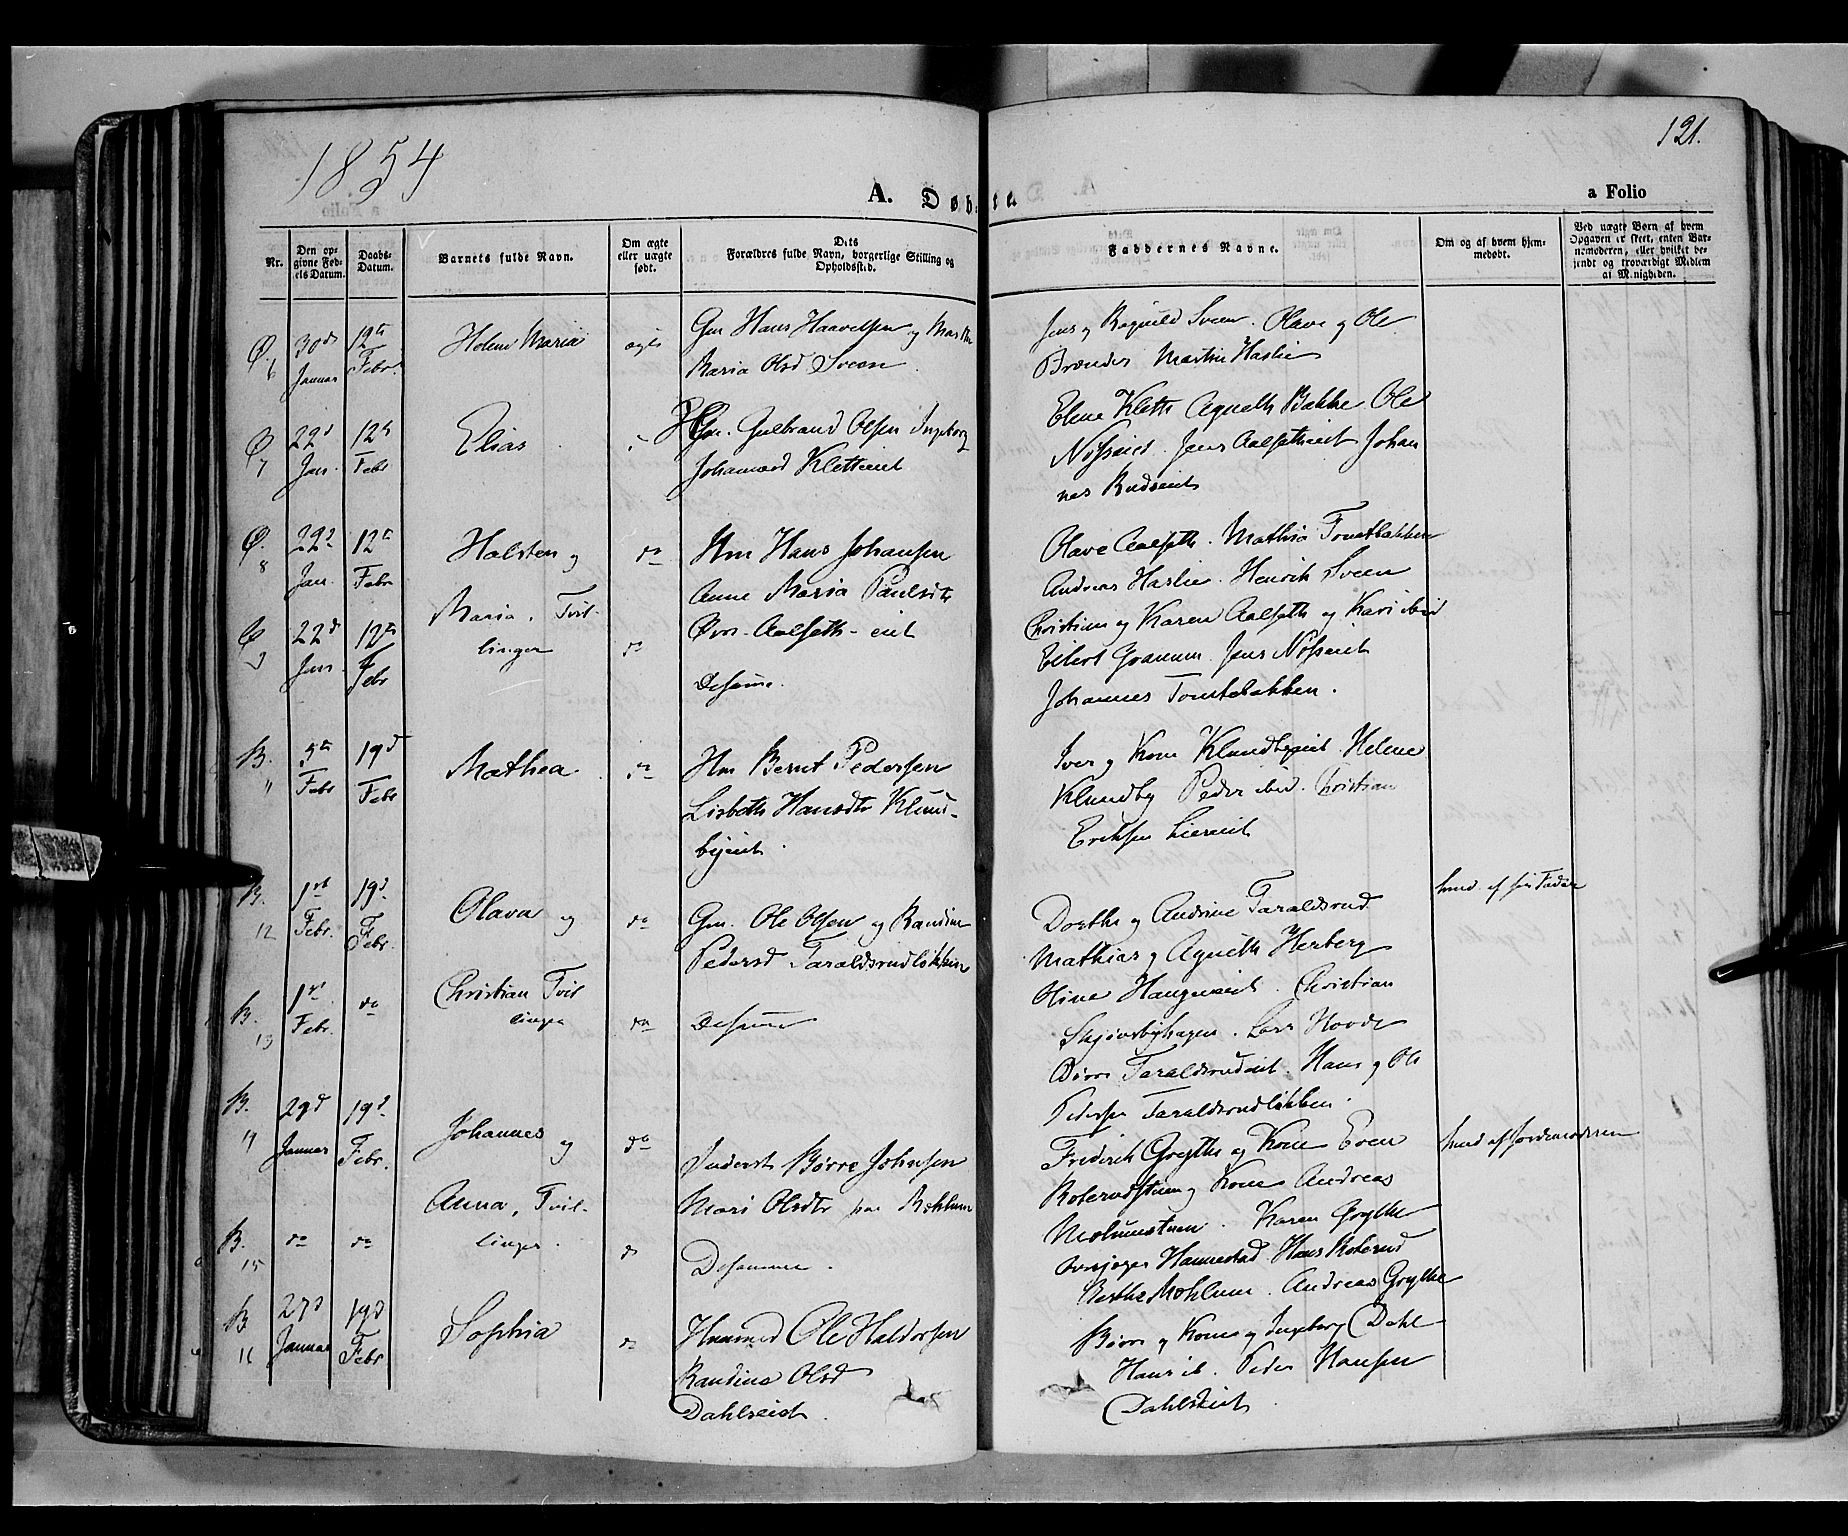 1854
121.
A. Døbte
a Folio
Nr.
Den op-
givne Fød-
sels Datum.
Daabs-
Datum.
Barnets fulde Navn.
Om ægte
eller uægte
født.
Dets
Forældres fulde Navn, borgerlige Stilling og
Opholdssted.
Faddernes Navne.
Om og af hvem hjem-
medøbt.
Ved uægte Børn af hvem
Opgaven er skeet, enten Bar-
nemoderen, eller hvilket be-
kjendt og troværdigt Medlem
af Menigheden.
Ø. 6
30d
Januar
12te
Febr.
Helene Maria
ægte
Gm Hans Haavelsen og
Maria Olsd Sveen
Jens og Ragnild Sveen. Olave og Ole
Brænden Martin Haslie
Ø 7
22d
Jan.
12te
Febr
Elias
Gm. Gulbrand Olsen Ingeborg
Johannesd Kletteeiet
Elene Klette Agnethe Bakke Ole
Nøsseiet. Jens Aalsetheiet Johan
nes Rudseiet
Ø. 8
22d
Jan.
12te
Febr
Halsten og
do
Hm Hans Johansen
Anne Maria Paulsdtr
Øvre-Aalseth-eiet
Olave Aalseth. Mathia Tomtbakken
Andreas Haslie. Henrik Sveen
Christian og Karen Aalseth og Kari ibid
Ø 9
22d
Jan.
12te
Febr
Maria, Tvil-
linger
do
Desamme.
Ellert Grannum. Jens Nøsseiet
Johannes Tomtebakken.
B. 11
5te
Febr
19d
Febr
Mathea
do
Hm Bernt Pedersen
Lisbeth Hansdtr Klund-
byeiet.
Iver og Kone Klundbyeiet. Helene
Klundby Peder ibid. Christian
Eriksen Liereiet
B. 12
1ste
Febr.
19d
Febr.
Olava og
do
Gm. Ole Olsen og Randine
Pedersd Taraldsrudløkken
Dorthe og Andrine Taraldsrud
Mathias og Agnethe Herberg
Oline Haugeneiet. Christian
hmd. af sin Fader
B. 13
1ste
Febr.
do
Christian Tvil
linger
do
Desamme
Skjønsbyhagen. Lars Hovde
Taraldsrudeiet. Hans og Ole
Pedersen Taraldsrudløkken.
B. 14
29d
Januar
19d
Febr.
Johannes og
do
Inderst Børre Johnsen
Mari Olsdtr paa Mæhlum
Frederik Grythe og Kone Even
Roterudstuen og Kone Andreas
Mælumstuen. Karen Grythe
hmd af Jordemoderen
B. 15
do
do
Anna, Tvil-
linger.
do
Desamme.
Hammestad Hans Roterud
Berthe Mæhlum. Andreas Grythe
B 16
27d
Januar
19d
Febr
Sophia
do
Huusmd Ole Haldorsen
Randine Olsd
Dahlseiet.
Børre og Kone og Ingeborg Dahl
Hans ib. Peder Hansen
Dahlseiet